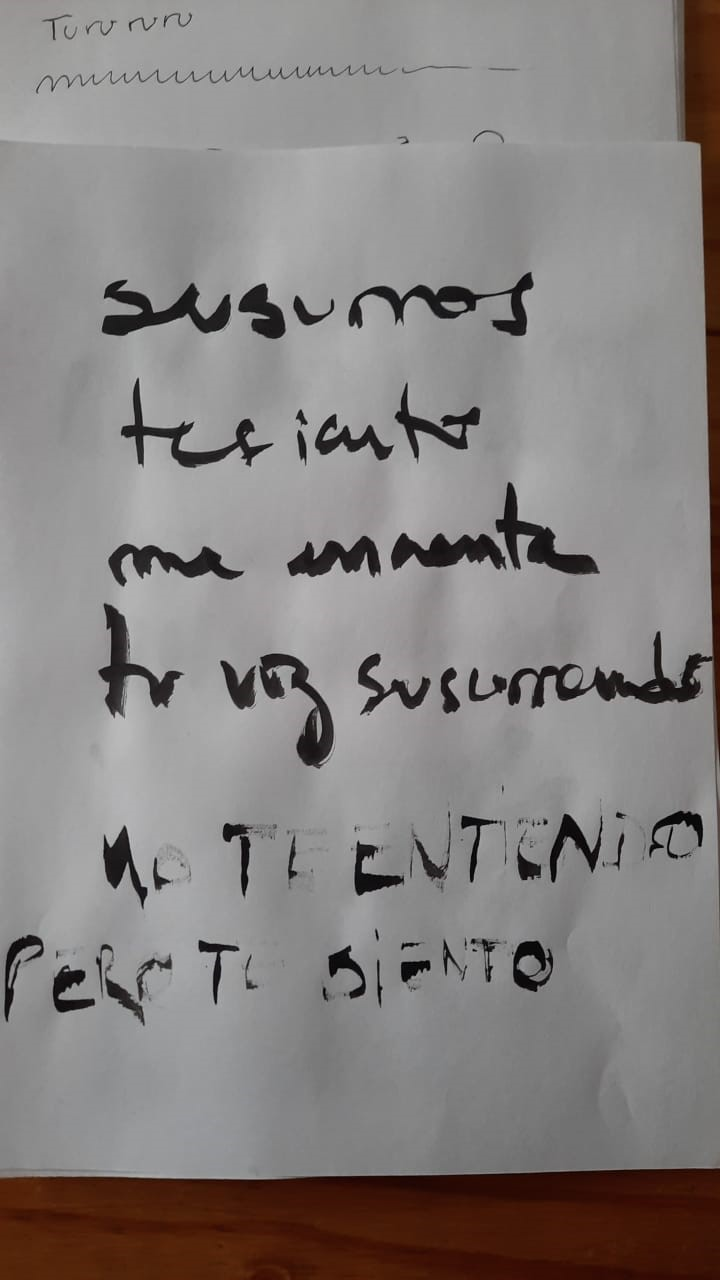 Turururu
susurros
te siento
me encanta
tu voz susurrando
NO TE ENTIENDO
PERO TE SIENTO